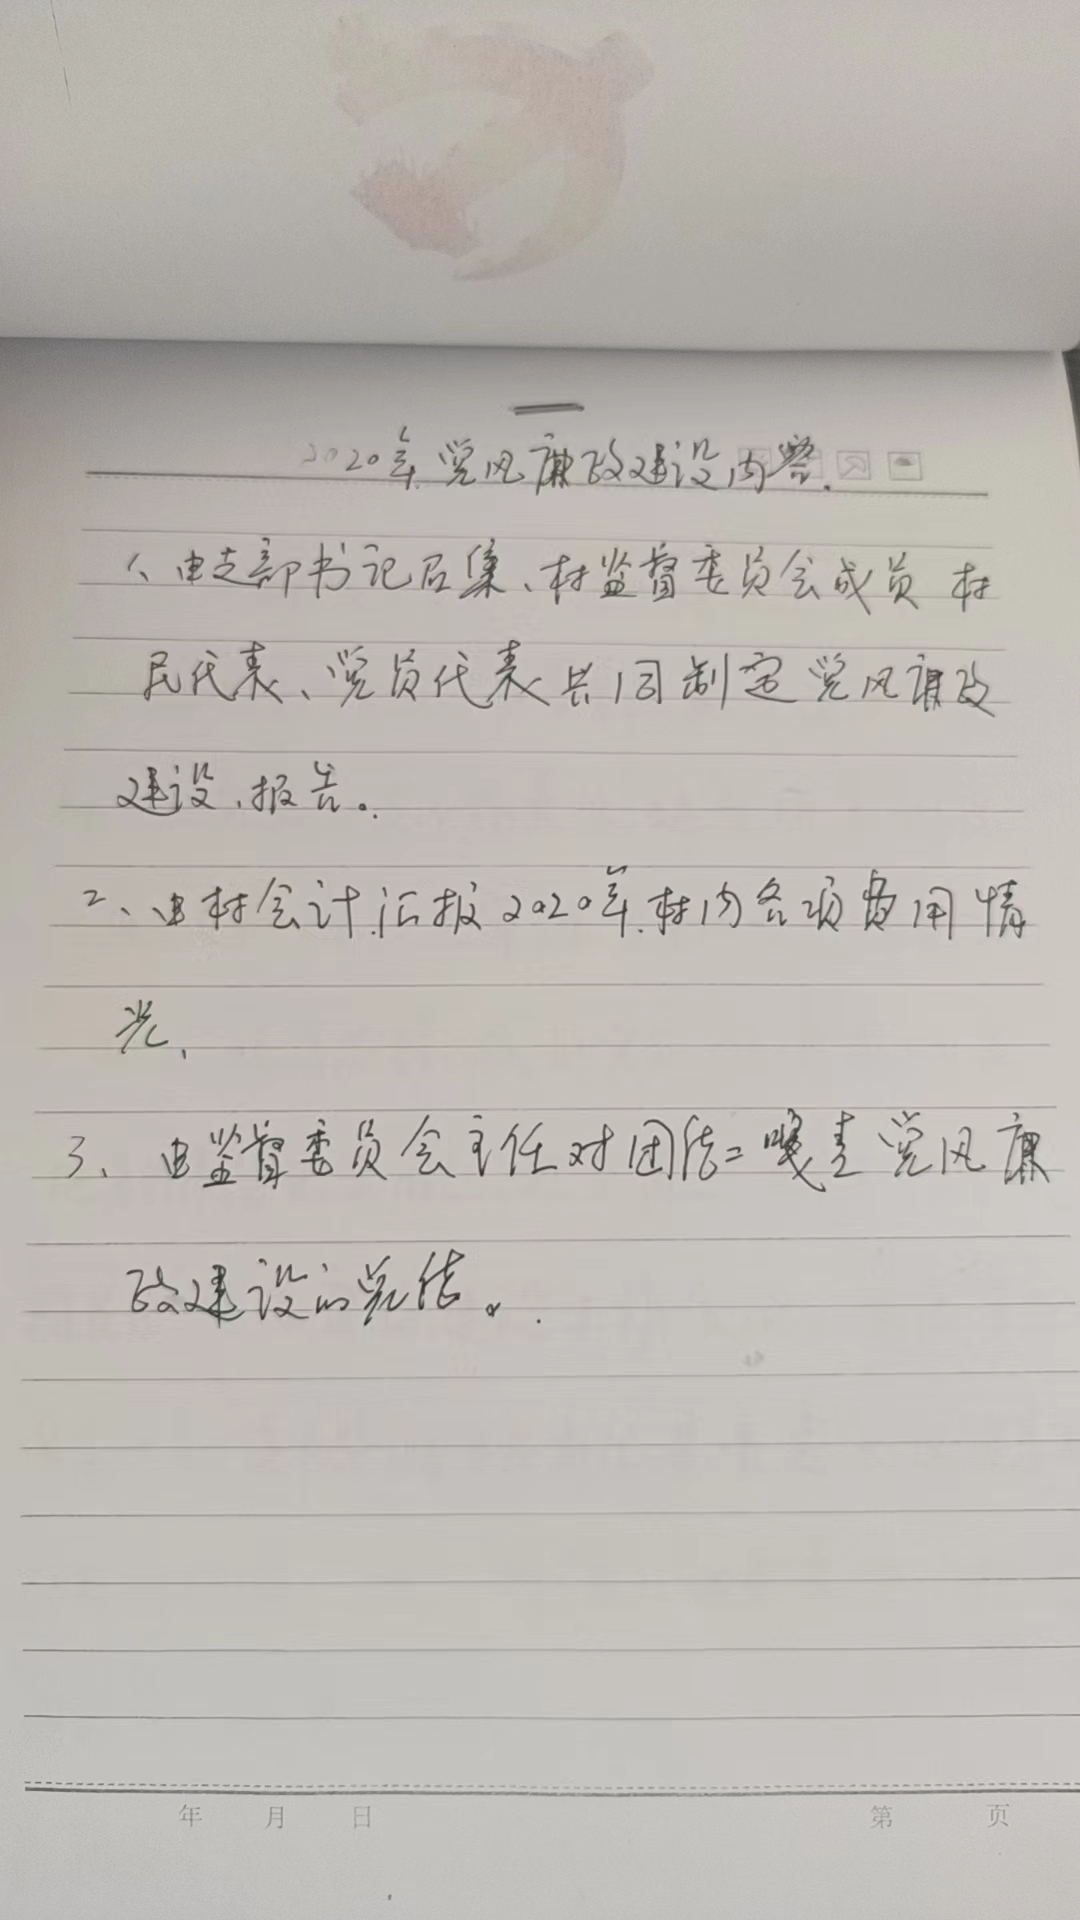 2020年党风廉政建设内容.
1、由支部书记召集、村监督委员会成员 村
民代表、党员代表共同制定党风廉政
建设、报告。
2、由村会计汇报2020年村内各项费用情
况、
3、由监督委员会主任对团结 党风廉
政建设的总结。
年 月 日 第 页